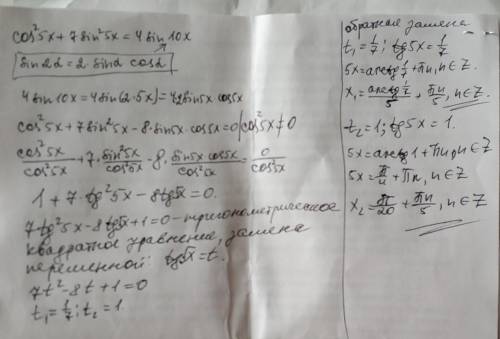 cos²5x + 7sin²5x = 4sin10x
sin2α = 2·sinα cosα
4sin10x = 4sin(2·5x) = 4·2sin5x cos5x
cos²5x + 7sin²5x - 8·sin5x·cos5x = 0 | cos²5x ≠ 0
cos²5x/cos²5x + 7·sin²5x/cos²5x - 8·sin5x cos5x/cos²5x = 0/cos²5x
1 + 7·tg²5x - 8tg5x = 0.
7tg²5x - 8tg5x + 1 = 0 - тригонометрическое
квадратное уравнение, замена
переменной: tg5x = t.
7t² - 8t + 1 = 0
t₁ = 1/7; t₂ = 1.
обратная замена
t₁ = 1/7; tg5x = 1/7
5x = arctg 1/7 + πn, n ∈ Z.
x₁ = arctg 1/7 / 5 + πn/5, n ∈ Z.
t₂ = 1; tg5x = 1.
5x = arctg1 + πn, n ∈ Z
5x = π/4 + πn, n ∈ Z
x₂ = π/20 + πn/5, n ∈ Z